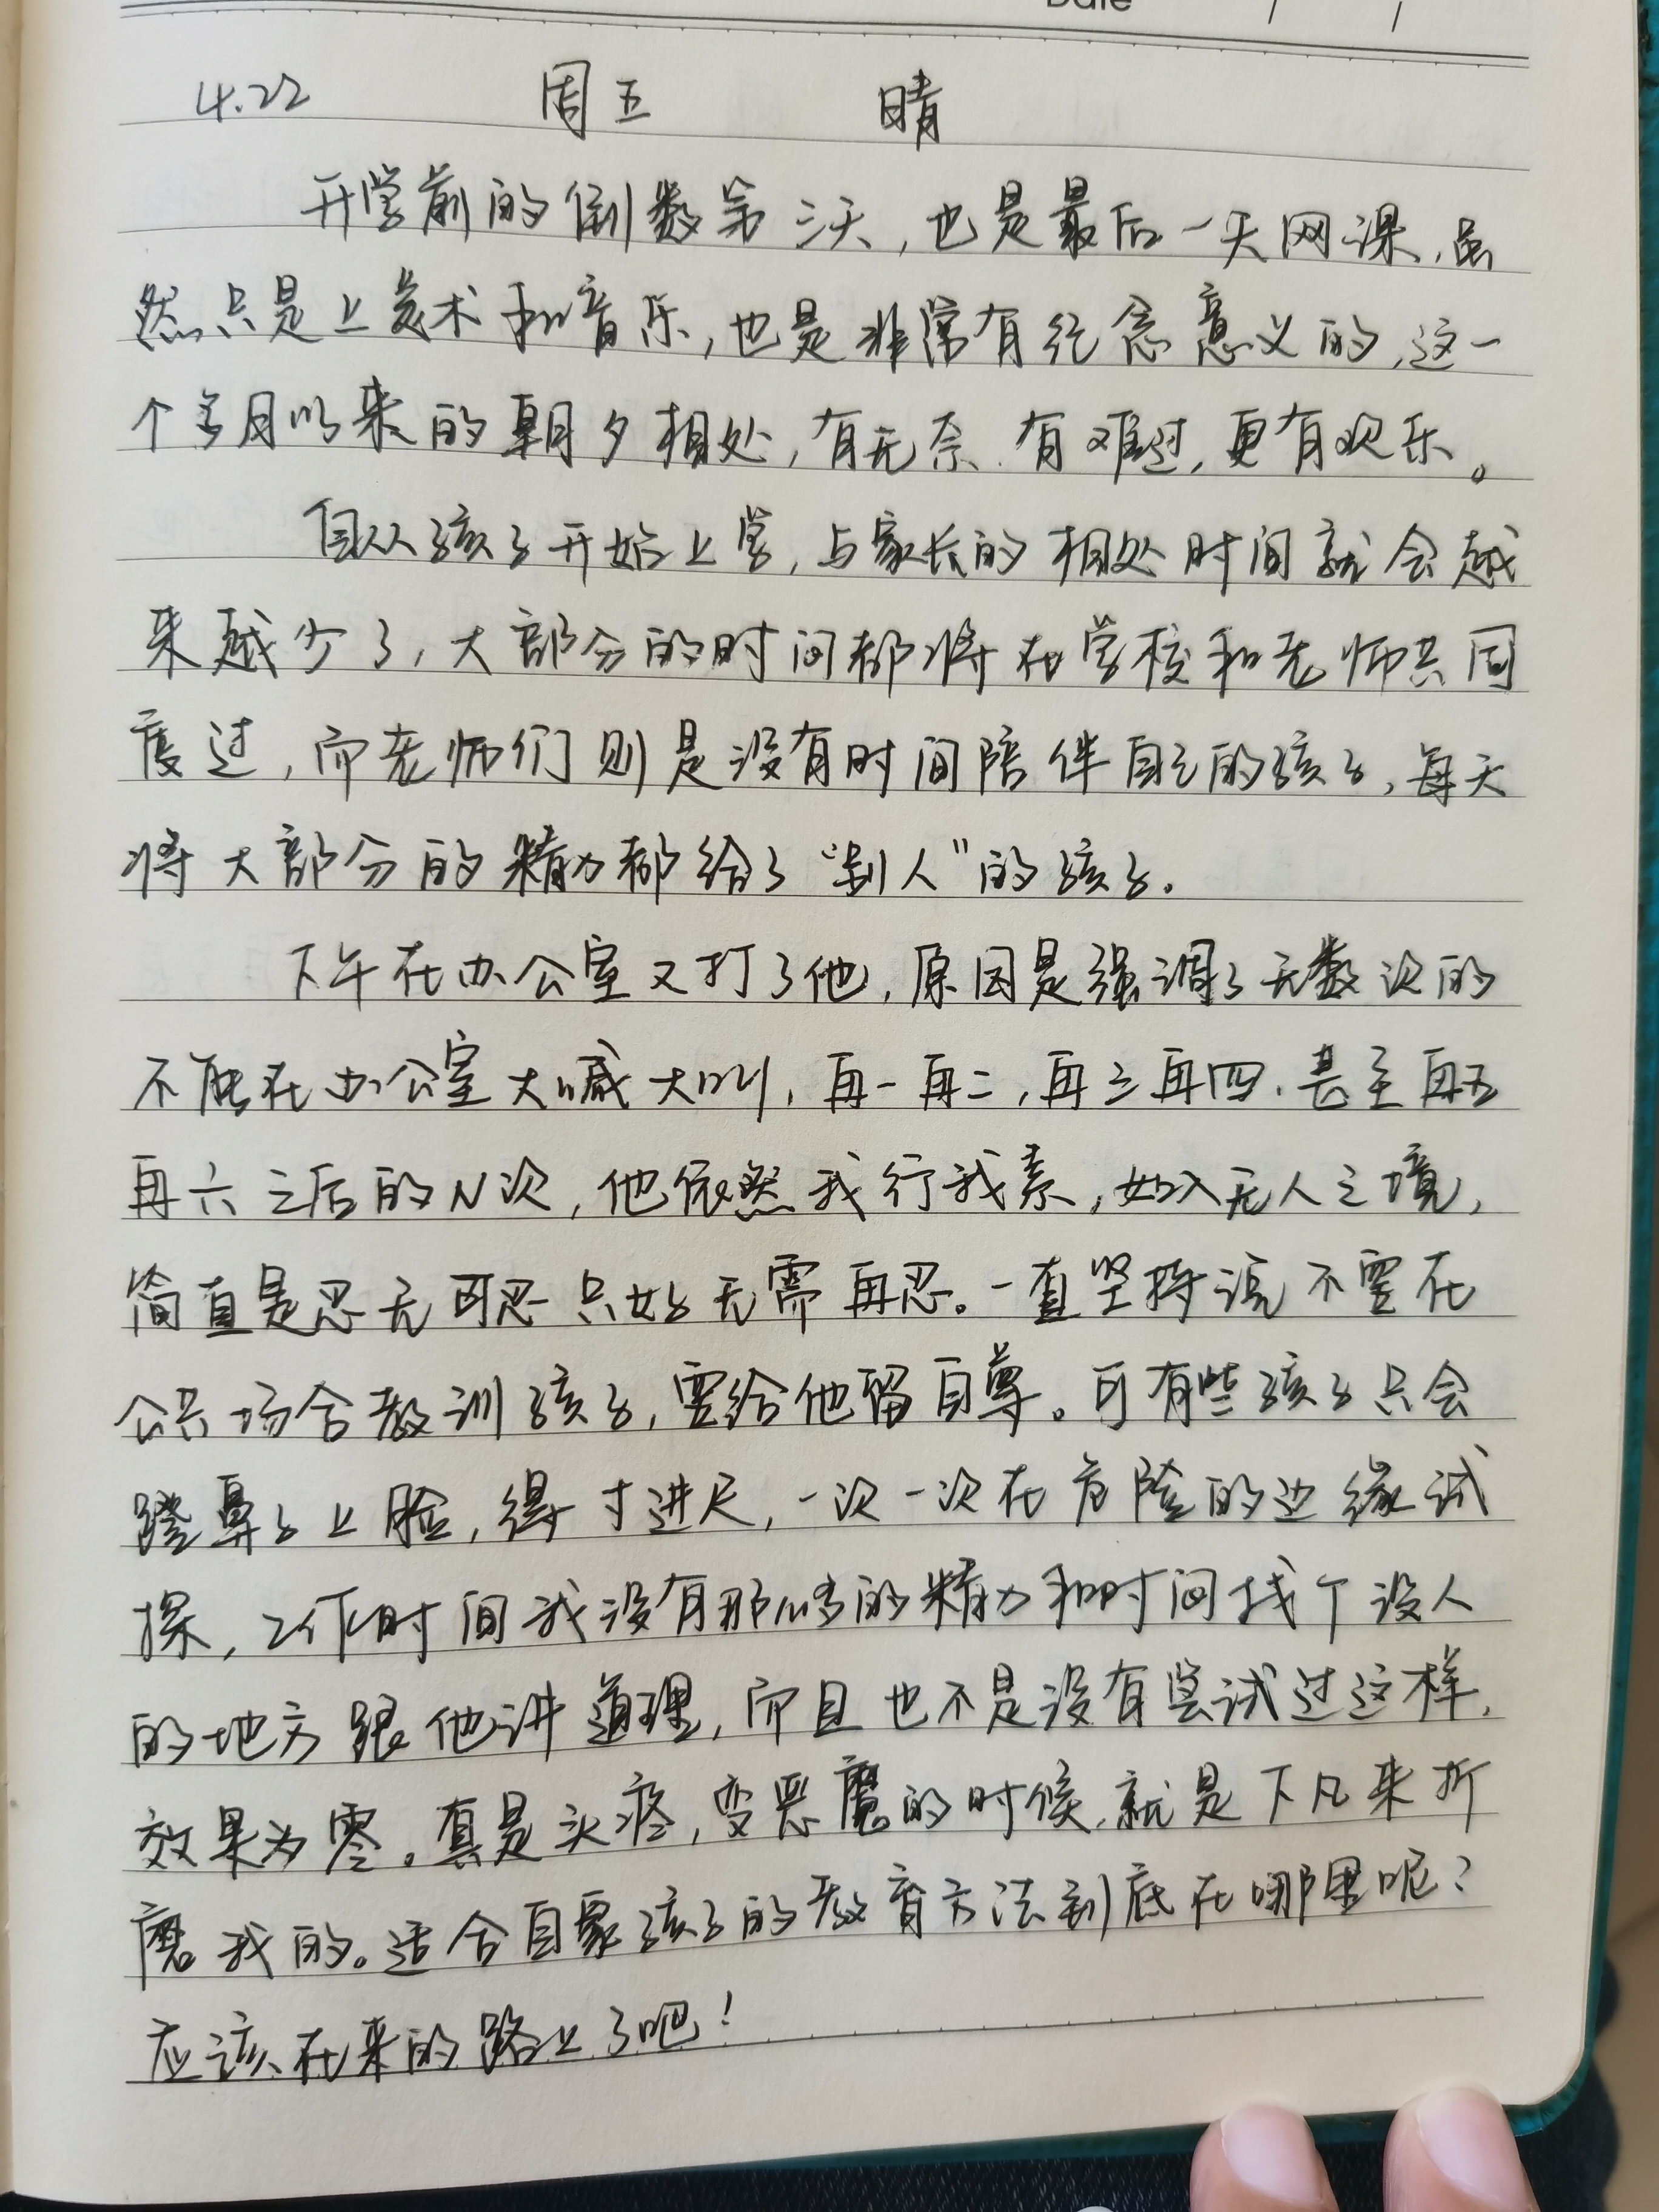 Date / /
4.22 周五 晴
开学前的倒数第三天,也是最后一天网课,虽
然只是上美术和音乐,也是非常有纪念意义的,这一
个多月以来的朝夕相处,有无奈.有难过,更有欢乐。
自从孩子开始上学,与家长的相处时间就会越
来越少了,大部分的时间都将在学校和老师共同
度过,而老师们则是没有时间陪伴自己的孩子,每天
将大部分的精力都给了“别人”的孩子.
下午在办公室又打了他,原因是强调了无数次的
不能在办公室大喊大叫,再一再二,再三再四.甚至再五
再六之后的N次,他依然我行我素,如入无人之境,
简直是忍无可忍只好无需再忍。一直坚持说不要在
公共场合教训孩子,要给他留自尊。可有些孩子只会
蹬鼻子上脸,得寸进尺,一次一次在危险的边缘试
探,工作时间我没有那么多的精力和时间找个没人
的地方跟他讲道理,而且也不是没有尝试过这样,
效果为零。真是头疼,变恶魔的时候,就是下凡来折
磨我的。适合自家孩子的教育方法到底在哪里呢?
应该在来的路上了吧!